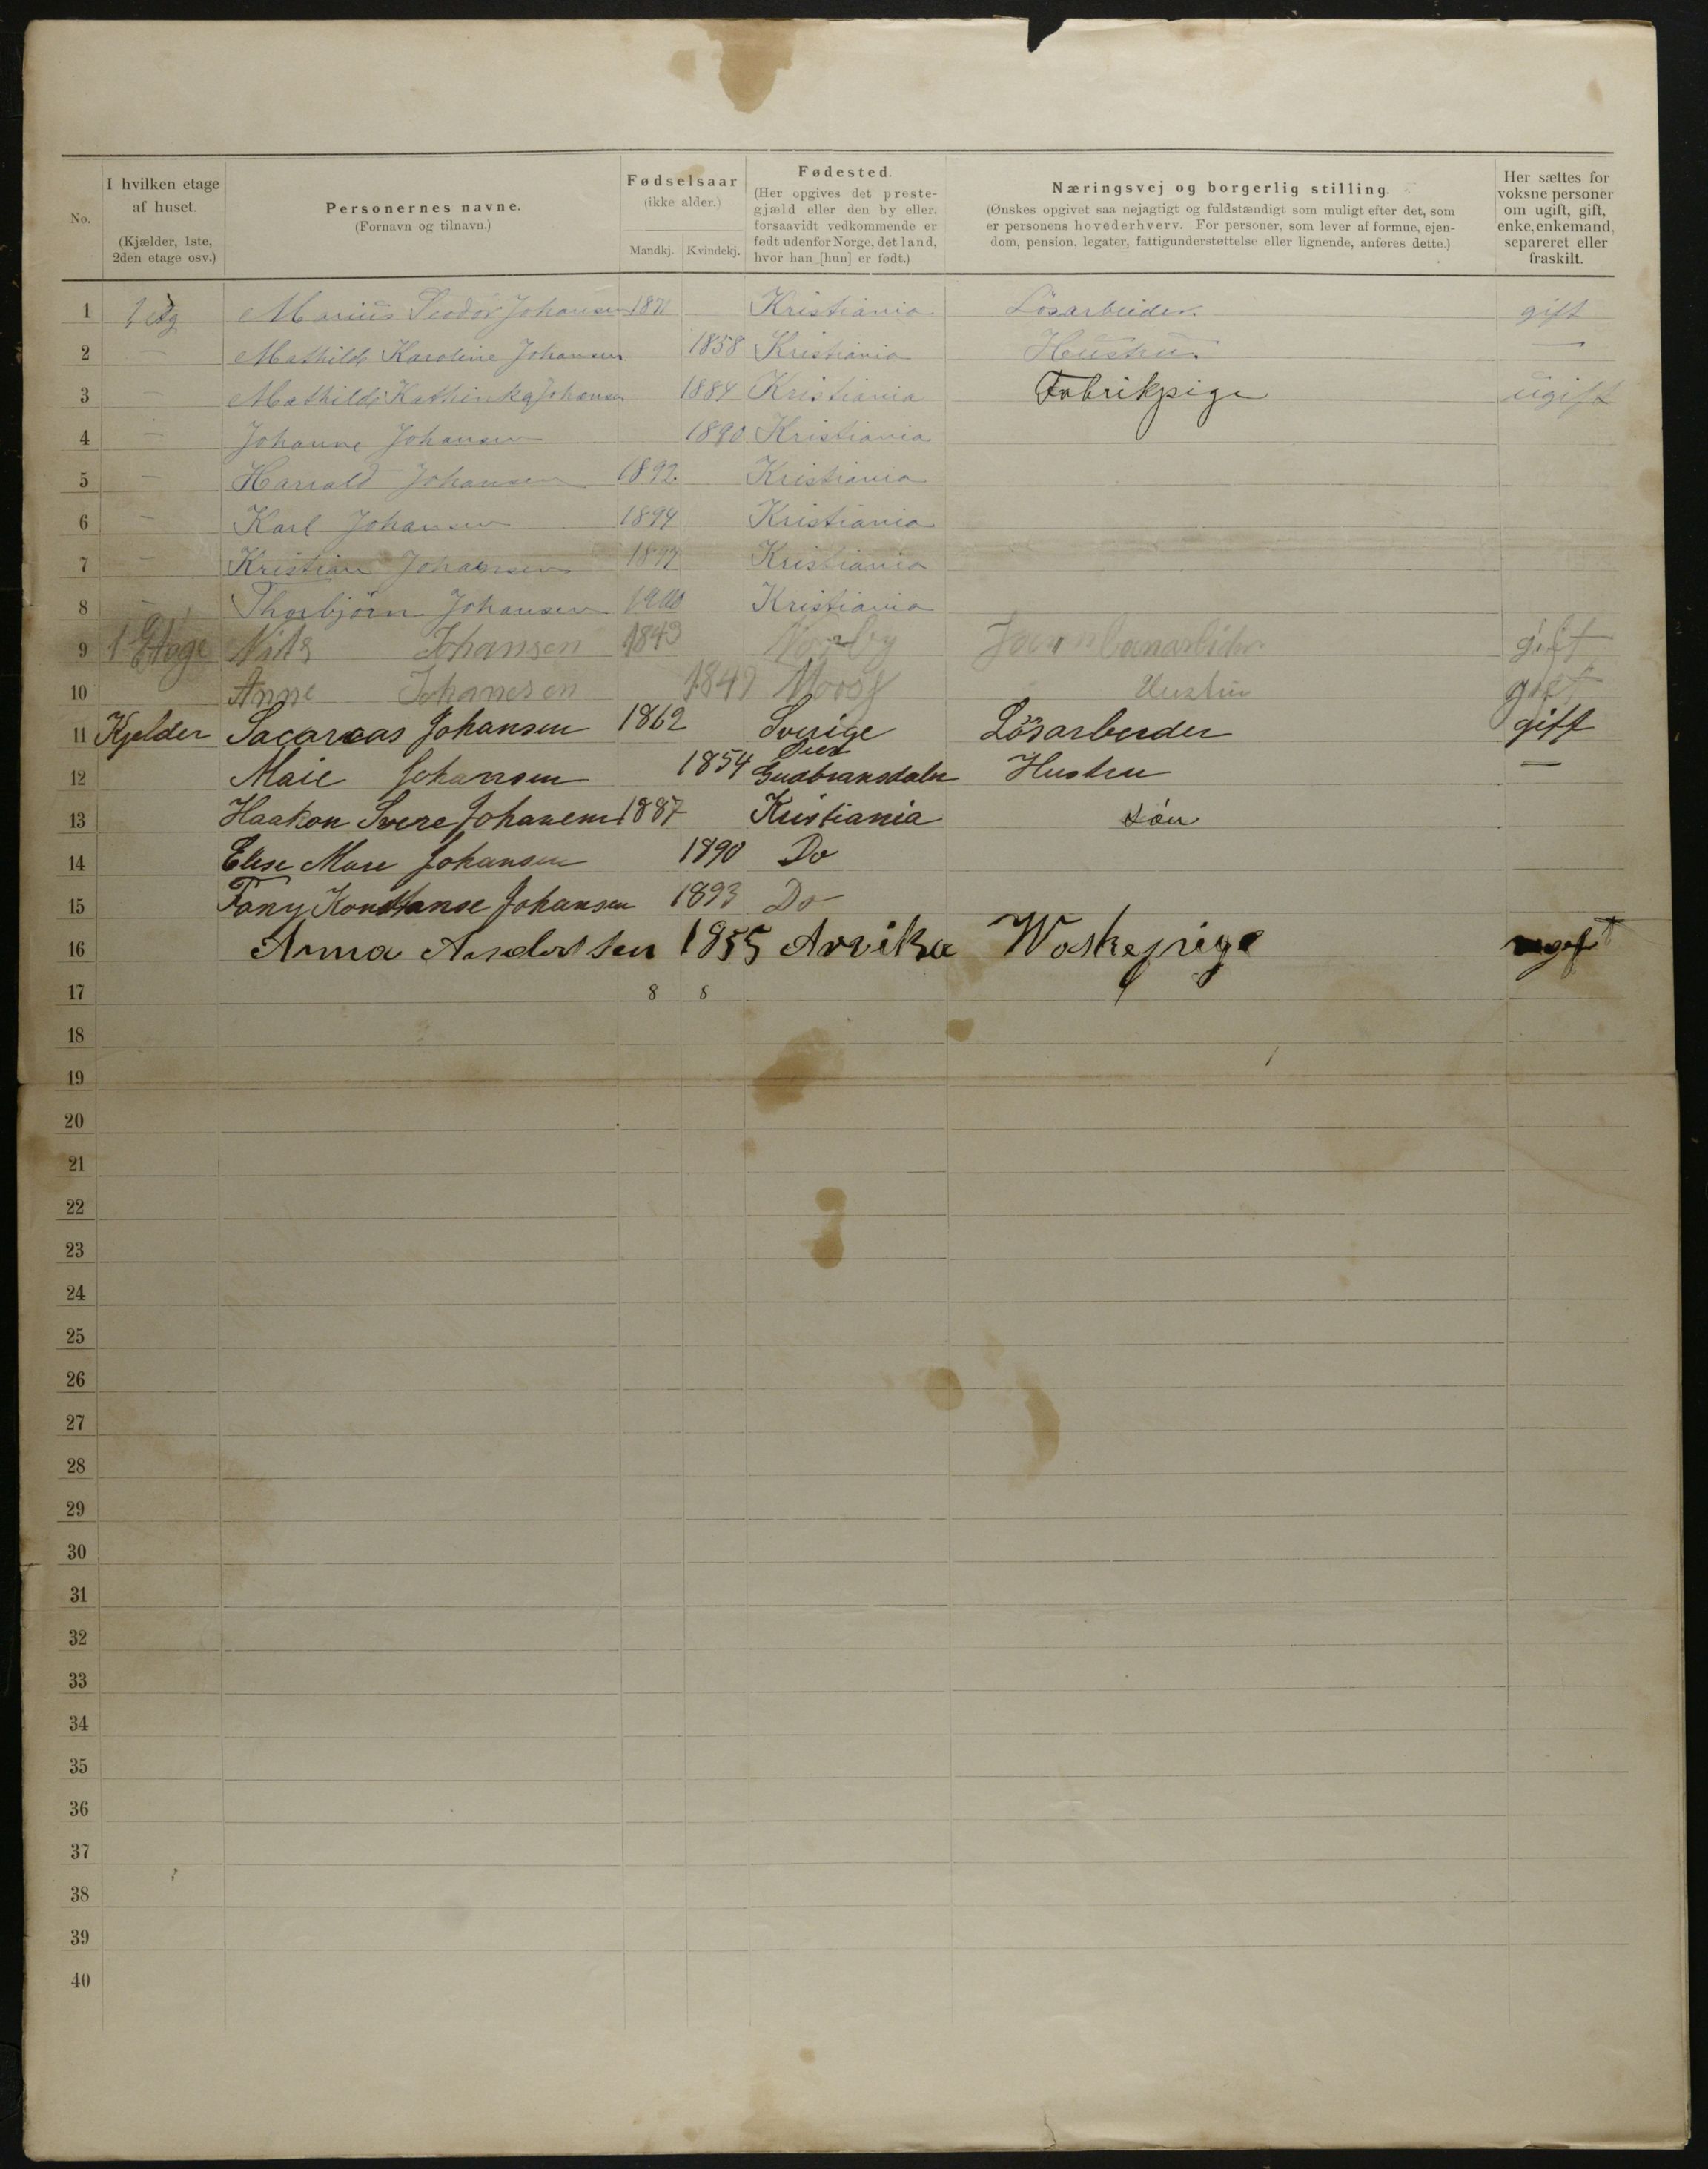 No. I hvilken etage af huset. (Kjælder, 1ste, 2den etage osv.) Personernes navne. (Fornavn og tilnavn.) Fødselsaar (ikke alder.) Mandkj. Kvindekj. Fødested. (Her opgives det prestegjæld eller den by eller, forsaavidt vedkommende er født udenfor Norge, det land, hvor han [hun] er født.) Næringsvej og borgerlig stilling. (Ønskes opgivet saa nøjagtigt og fuldstændigt som muligt efter det, som er personens hovederhverv. For personer, som lever af formue, ejendom, pension, legater, fattigunderstøttelse eller lignende, anføres dette.) Her sættes for voksne personer om ugift, gift, enke, enkemand, separeret eller fraskilt.
1 1 etg Marius Teodor Johansen 1871 Kristiania Lösarbeider. gift
2 — Mathilde Karoline Johansen 1858 Kristiania Hustru. —
3 — Mathilde Kathinka Johansen 1884 Kristiania Fabrikpige ugift
4 — Johanne Johansen 1890 Kristiania
5 — Harrald Johansen 1892 Kristiania
6 — Karl Johansen 1894 Kristiania
7 — Kristian Johansen 1897 Kristiania
8 — Thorbjörn Johansen 1900 Kristiania
9 1 Etage Nils Johansen 1843 gift
10 Anne Johansen 1849 Moss Hustru gift
11 Kjelder Sacarias Johansen 1862 Sverige Lösarbeider gift
12 Maie Johansen 1854 Gudbransdalen Hustru —
13 Haakon Svere Johansen 1887 Kristiania Sön
14 Elise Marie Johansen 1890 Do
15 Fany Konstanse Johansen 1893 Do
16 Anna Anderssen 1855 Arvika Waskepige ugift
17 8 8
18
19
20
21
22
23
24
25
26
27
28
29
30
31
32
33
34
35
36
37
38
39
40